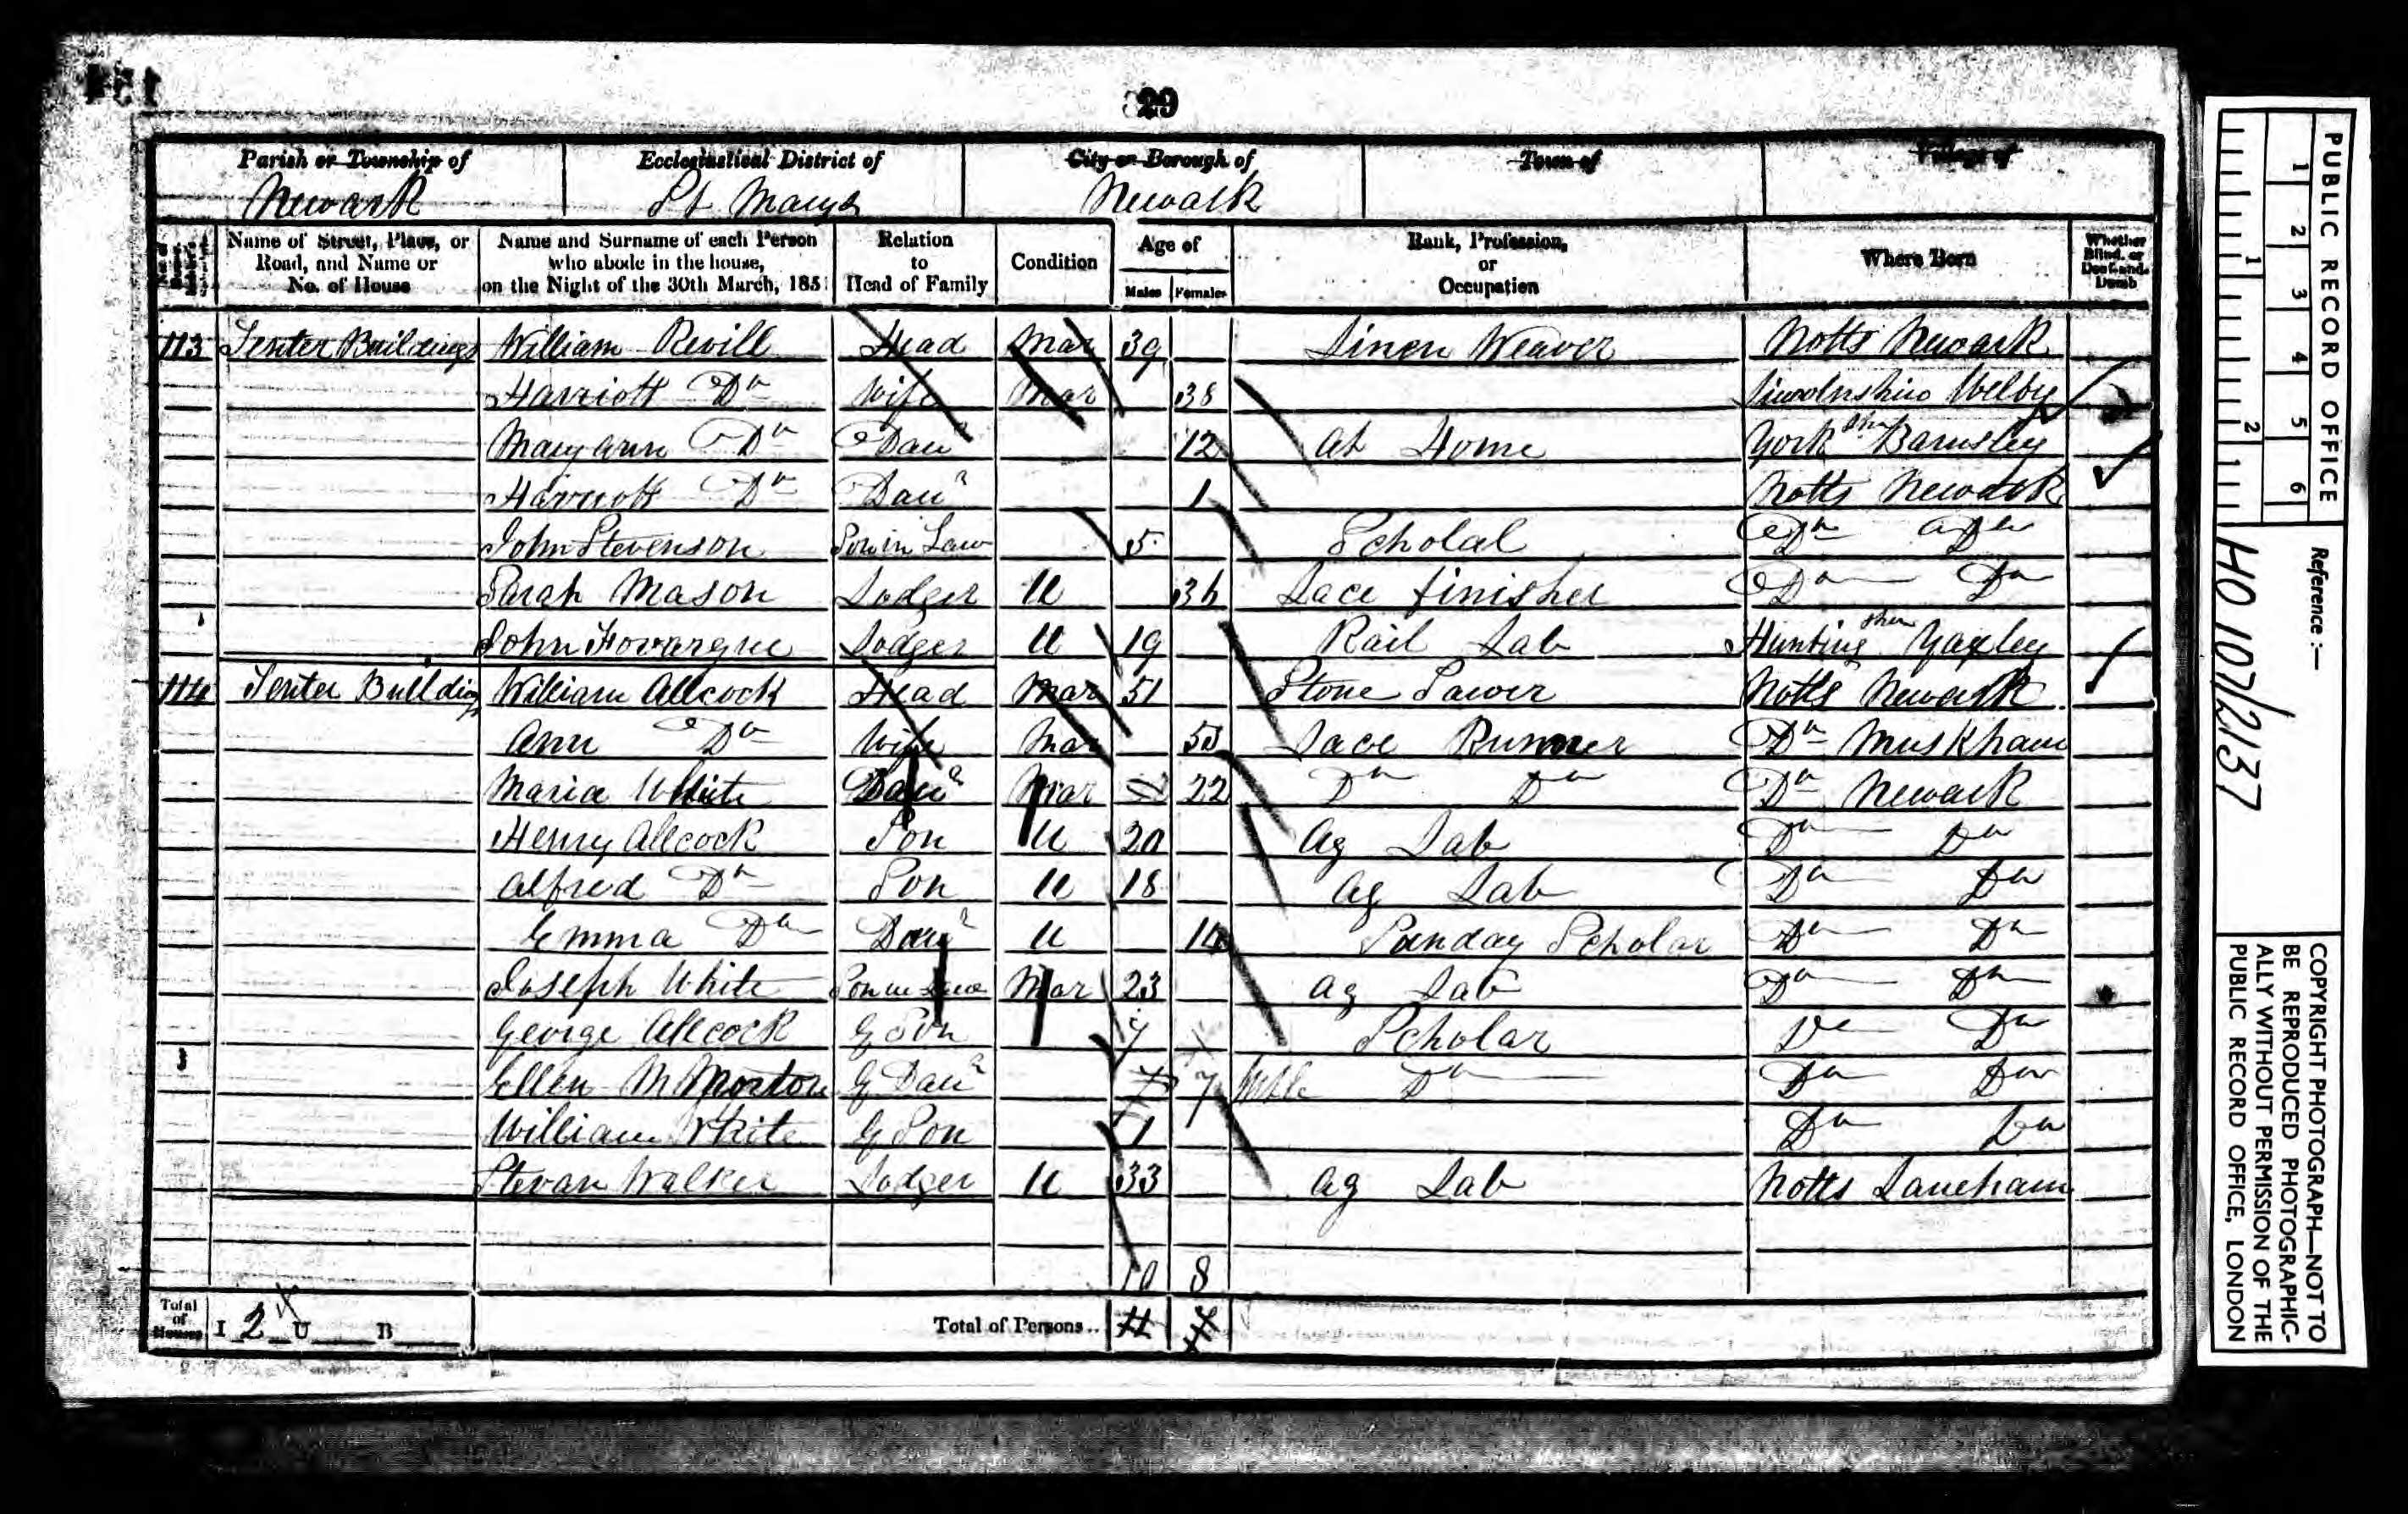 29
Parish or Township of Ecclesiastical District of City or Borough of Town of Village of
Newark St Marys Newark
Name of Street, Place, or Road, and Name or No. of House
Name and Surname of each Person who abode in the house, on the Night of the 30th March, 1851
Relation to Head of Family
Condition
Age of
Males Females
Rank, Profession, or Occupation
Where Born
Whether Blind, or Deaf-and-Dumb
113 Tenter Buildings William Revill Head Mar 39 Linen Weaver Notts Newark
Harriott Do Wife Mar 38 Lincolnshire Welby
Mary Ann Do Daur 12 At Home York shire Barnsley
Harriott Do Daur 1 Notts Newark
John Stevenson Son in Law 5 Scholar Do Do
Sarah Mason Lodger U 36 Lace finisher Do Do
John Fovargue Lodger U 19 Rail Lab Hunting shire Yaxley
114 Tenter Building William Allcock Head Mar 51 Stone Sawer Notts Newark
Ann Do Wife Mar 53 Lace Runner Do Muskham
Maria White Daur Mar 22 Do Do Do Newark
Henry Allcock Son U 20 Ag Lab Do Do
Alfred Do Son U 18 Ag Lab Do Do
Emma Do Daur U 14 Sunday Scholar Do Do
Joseph White Son in Law Mar 23 Ag Lab Do Do
George Allcock G Son 7 Scholar Do Do
Ellen M Morton G Daur 7 Do Do Do
William White G Son 1 Do Do
Stevan Walker Lodger U 33 Ag Lab Notts Laneham
10 8
Total of Houses I 2 U B Total of Persons.. 11 7
PUBLIC RECORD OFFICE
1 2 3 4 5 6
1 2
Reference :—
HO 107/2137
COPYRIGHT PHOTOGRAPH—NOT TO
BE REPRODUCED PHOTOGRAPHIC-
ALLY WITHOUT PERMISSION OF THE
PUBLIC RECORD OFFICE, LONDON